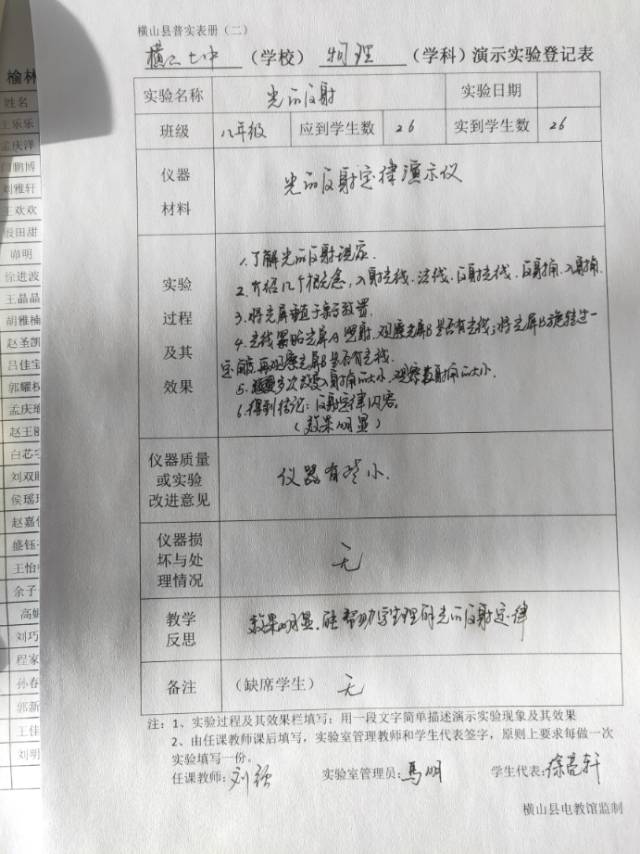 横山县普实表册（二）
横山七中（学校） 物理（学科）演示实验登记表
实验名称 光的反射 实验日期
班级 八年级 应到学生数 26 实到学生数 26
仪器材料 光的反射定律演示仪
实验过程及其效果
1.了解光的反射现象.
2.介绍几个概念,入射光线.法线.反射光线.反射角.入射角.
3.将光屏垂直于平面镜放置.
4.光线紧贴光屏A照射.观察光屏B是否有光线;将光屏B旋转过一
定角度,再观察光屏B是否有光线.
5.多次改变入射角的大小,观察反射角的大小.
6.得到结论:反射定律内容。
（效果明显）
仪器质量或实验改进意见 仪器有些小.
仪器损坏与处理情况 无
教学反思 效果明显.能帮助学生理解光的反射定律
备注 （缺席学生） 无
注：1、实验过程及其效果栏填写：用一段文字简单描述演示实验现象及其效果
2、由任课教师课后填写，实验室管理教师和学生代表签字，原则上要求每做一次
实验填写一份。
任课教师:刘强 实验室管理员:马明 学生代表:徐亮轩
横山县电教馆监制
榆林
姓名
王乐乐
孟庆洋
鹏博
刘雅轩
王欢欢
田甜
明
徐进波
王晶晶
胡雅楠
赵圣凯
吕佳宝
郭耀权
孟庆瑜
赵王
白芯
刘双
侯瑶
赵嘉
盛钰
王怡
余子
高
刘巧
程家
孙春
郭新
王佳
刘明